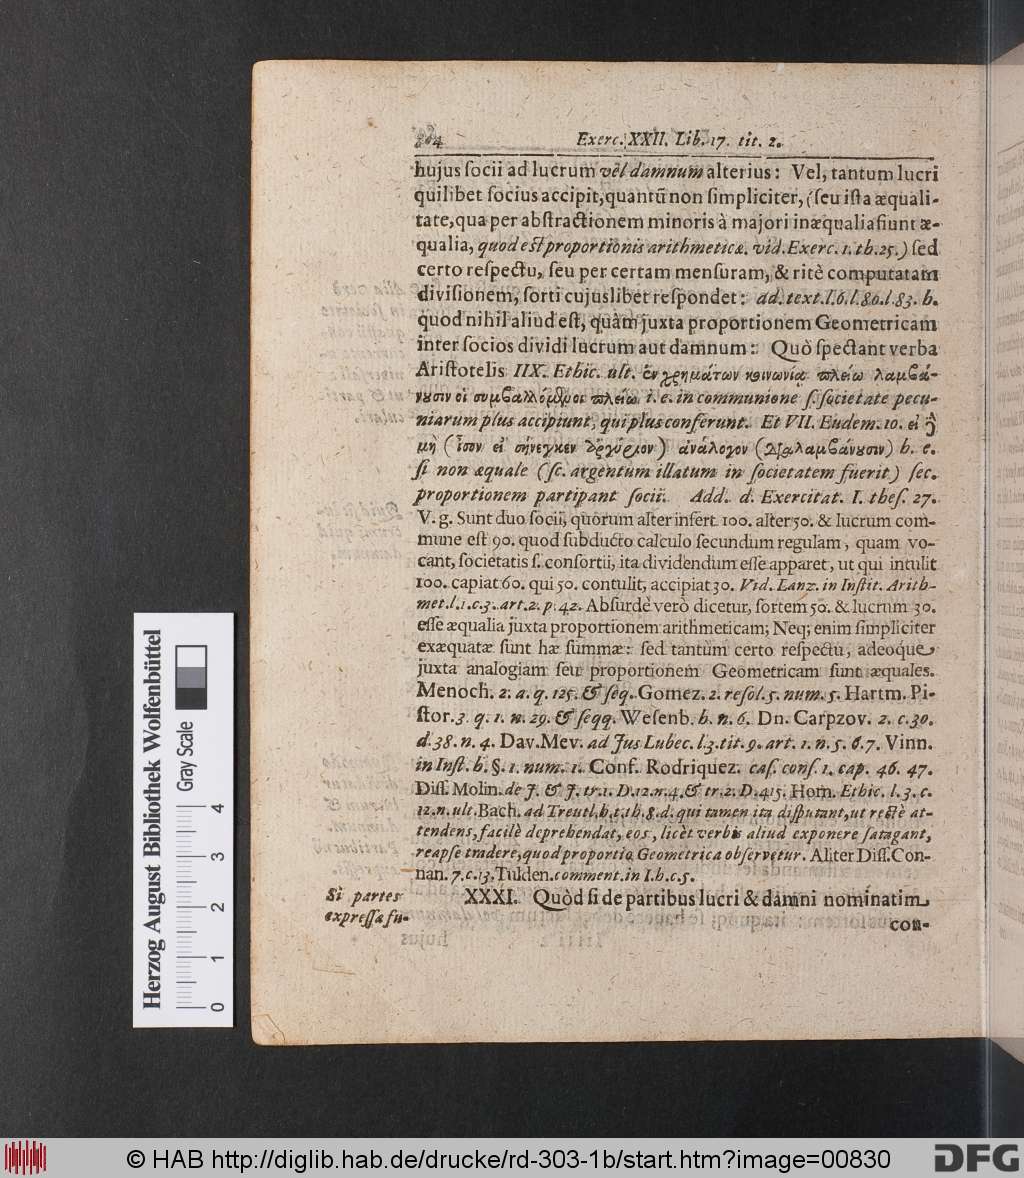 804 Exerc. XXII. Lib. 17. tit. 2.
hujus ſocii ad lucrum vel damnum alterius: Vel, tantum lucri
quilibet ſocius accipit, quantũ non ſimpliciter, (ſeu iſta æquali-
tate, qua per abſtractionem minoris à majori inæqualia fiunt æ-
qualia, quod eſt proportionis arithmeticæ. vid. Exerc. 1. th. 25.) ſed
certo reſpectu, ſeu per certam menſuram, & ritè computatam
diviſionem, ſorti cujuslibet reſpondet: ad. text. l. 6. l. 80. l. 83. h.
quod nihil aliud eſt, quàm juxta proportionem Geometricam
inter ſocios dividi lucrum aut damnum: Quò ſpectant verba
Ariſtotelis IIX. Ethic. ult. ἐν χρημάτων κοινωνίᾳ πλείω λαμβά-
νουσιν οἱ συμβαλλόμενοι πλείω i. e. in communione ſ. ſocietate pecu-
niarum plus accipiunt, qui plus conferunt. Et VII. Eudem. 10. εἰ δὲ
μὴ (ἴσον εἰ σήνεγκεν ἀργύριον) ἀνάλογον (διαλαμβάνουσιν) h. e.
ſi non æquale (ſc. argentum illatum in ſocietatem fuerit) ſec.
proportionem partipant ſocii. Add. d. Exercitat. I. theſ. 27.
V. g. Sunt duo ſocii, quorum alter inſert 100. alter 50. & lucrum com-
mune eſt 90. quod ſubducto calculo ſecundum regulam, quam vo-
cant, ſocietatis ſ. conſortii, ita dividendum eſſe apparet, ut qui intulit
100. capiat 60. qui 50. contulit, accipiat 30. Vid. Lanz. in Inſtit. Arith-
met. l. 1. c. 3. art. 2. p. 42. Abſurdè verò dicetur, ſortem 50. & lucrum 30.
eſſe æqualia juxta proportionem arithmeticam; Neq; enim ſimpliciter
exæquatæ ſunt hæ ſummæ: ſed tantùm certo reſpectu, adeoque
juxta analogiam ſeu proportionem Geometricam ſunt æquales.
Menoch. 2. a. q. 125. & ſeq. Gomez. 2. reſol. 5. num. 5. Hartm. Pi-
ſtor. 3. q. 1. n. 29. & ſeqq. Weſenb. h. n. 6. Dn. Carpzov. 2. c. 30.
d. 38. n. 4. Dav. Mev. ad Jus Lubec. l. 3. tit. 9. art. 1. n. 5. 6. 7. Vinn.
in Inſt. h. §. 1. num. 1. Conf. Rodriquez. caſ. conſ. 1. cap. 46. 47.
Diſſ. Molin. de J. & J. tr. 1. D. 12. n. 4. & tr. 2. D. 415. Horn. Ethic. l. 3. c.
12. n. ult. Bach. ad Treutl. h. t. th. 8. d. qui tamen ita diſputant, ut rectè at-
tendens, facilè deprehendat, eos, licèt verbis aliud exponere ſatagant,
reapſe tradere, quod proportio Geometrica obſervetur. Aliter Diſſ. Con-
nan. 7. c. 13. Tulden. comment. in I. h. c. 5.
Si partes
expreſſa ſu-
XXXI. Quòd ſi de partibus lucri & damni nominatim
con-
Herzog August Bibliothek Wolfenbüttel
Gray Scale
0 1 2 3 4
© HAB http://diglib.hab.de/drucke/rd-303-1b/start.htm?image=00830
DFG